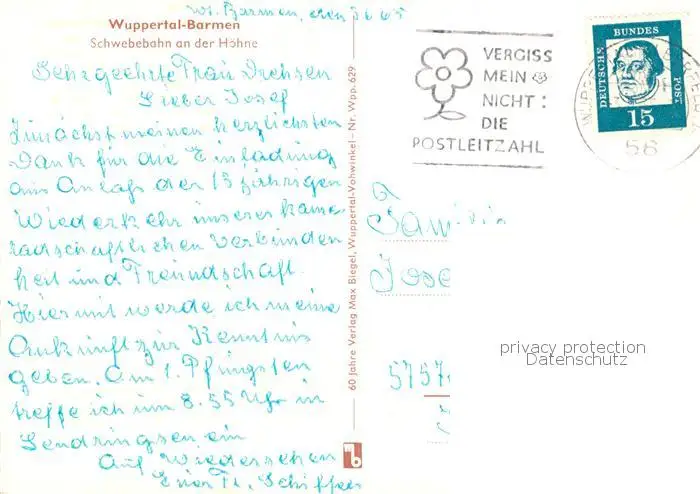 W. Barmen, den 3 6 65
Wuppertal-Barmen
Schwebebahn an der Höhne
Sehr geehrte Frau Drehsen
Lieber Josef
Zunächst meinen herzlichsten
Dank für die Einladung
aus Anlaß der 15 jährigen
Wiederkehr unserer kame
radschaftlichen Verbunden
heit und Freundschaft.
Hiermit werde ich meine
Ankunft zur Kenntnis
geben. Am 1. Pfingsten
treffe ich um 8.55 Uhr in
Lendringsen ein
Auf Wiedersehen
Euer
60 Jahre Verlag Max Biegel, Wuppertal-Vohwinkel - Nr. Wpp. 629
VERGISS
MEIN
NICHT:
DIE
POSTLEITZAHL
DEUTSCHE BUNDESPOST
15
56
Fam
Jose
5757
privacy protection
Datenschutz